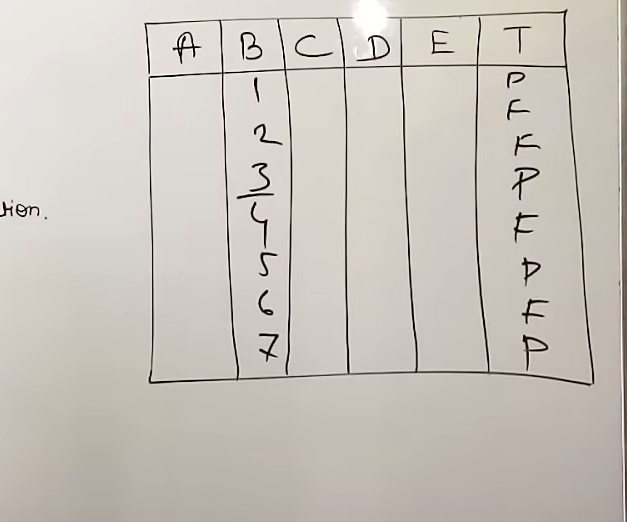 A B C D E T
1 P
F
2 F
3 P
4 F
5 P
6 F
7 P